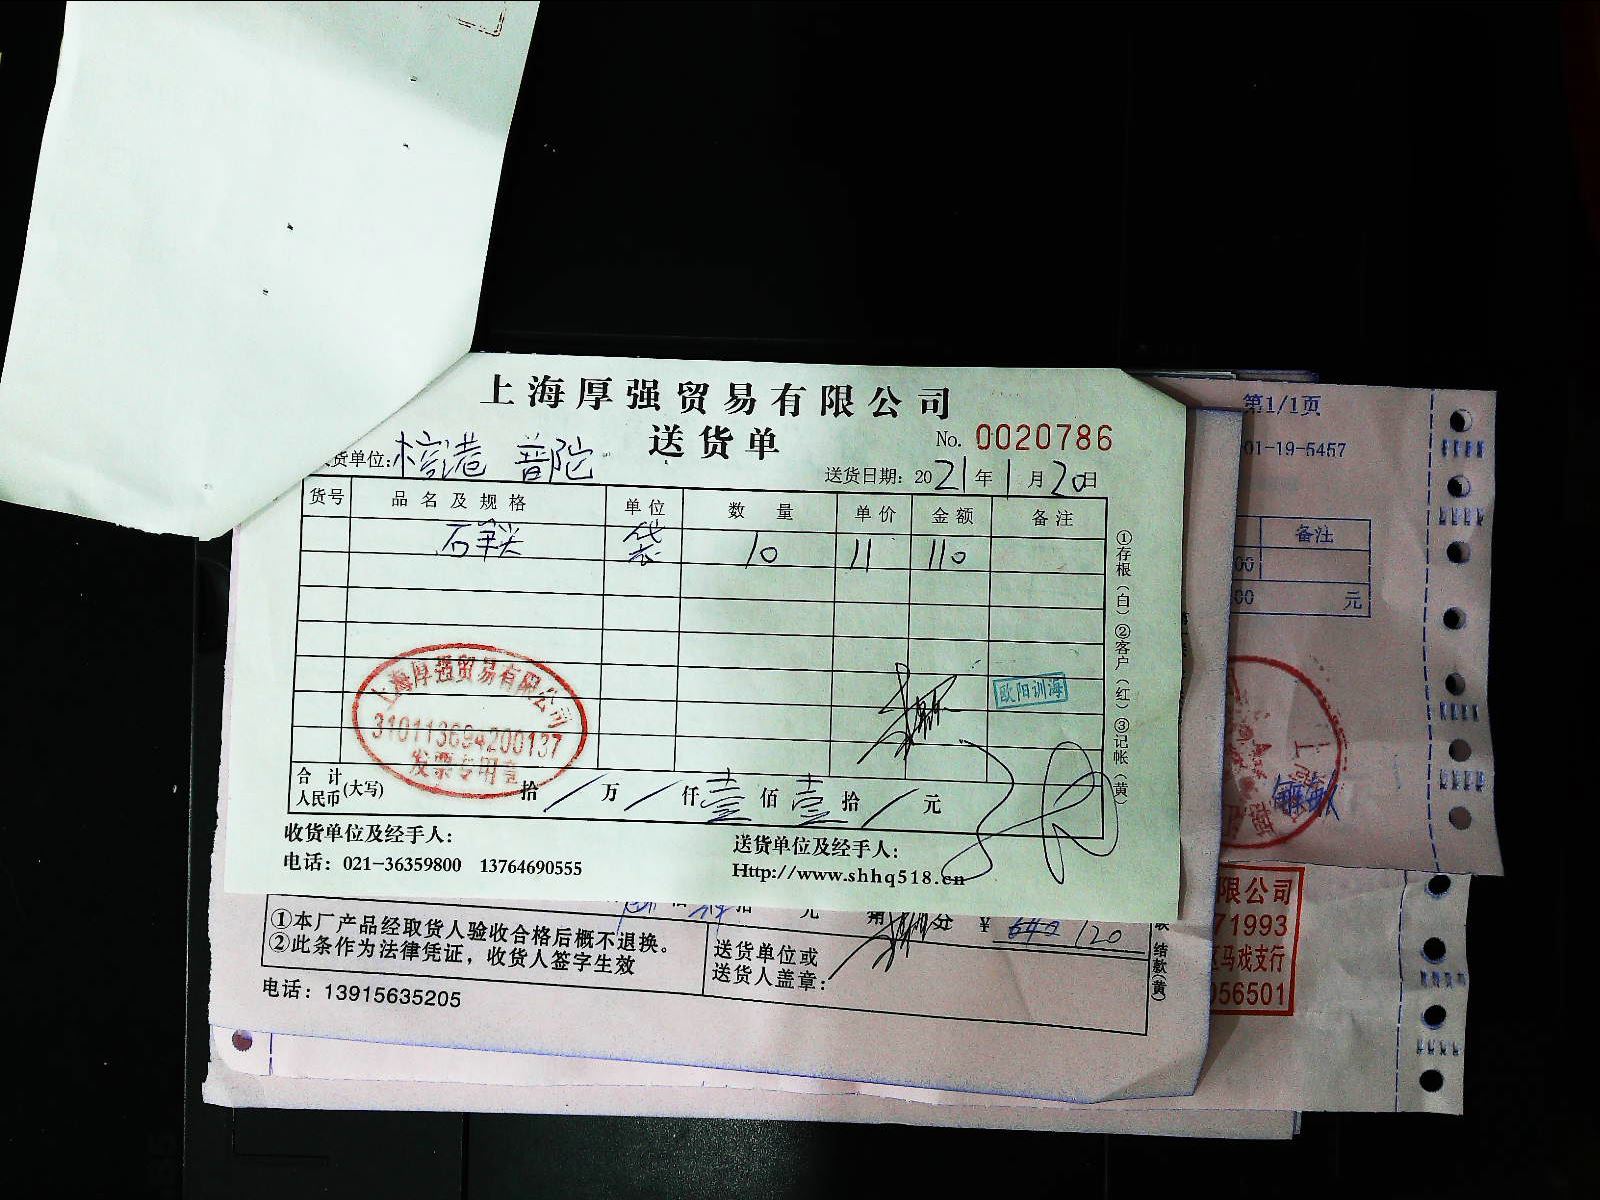 上海厚强贸易有限公司
送货单
No. 0020786
货单位: 普陀
送货日期: 2021年1月20日
货号 品名及规格 单位 数量 单价 金额 备注
袋 10 11 110
①存根(白)②客户(红)③记帐(黄)
上海厚强贸易有限公司
310113694200137
发票专用章
欧阳训海
合计人民币(大写) 拾/万/仟壹佰壹拾/元
收货单位及经手人:
送货单位及经手人:
电话: 021-36359800 13764690555
Http://www.shhq518.cn
①本厂产品经取货人验收合格后概不退换。
②此条作为法律凭证，收货人签字生效
送货单位或
送货人盖章:
¥ 120
结款(黄)
电话: 13915635205
第1/1页
01-19-5457
备注
00
00 元
限公司
71993
马戏支行
056501